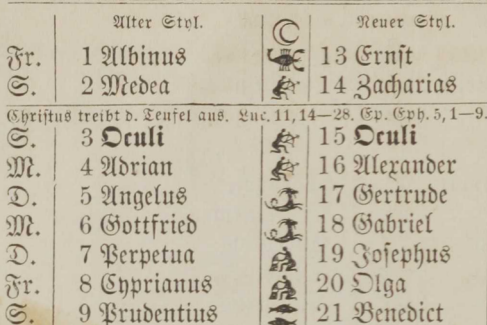 Alter Styl. Neuer Styl.
Fr. 1 Albinus 13 Ernst
S. 2 Medea 14 Zacharias
Christus treibt d. Teufel aus. Luc. 11, 14—28. Ep. Eph. 5, 1—9.
S. 3 Oculi 15 Oculi
M. 4 Adrian 16 Alexander
D. 5 Angelus 17 Gertrude
M. 6 Gottfried 18 Gabriel
D. 7 Perpetua 19 Josephus
Fr. 8 Cyprianus 20 Olga
S. 9 Prudentius 21 Benedict